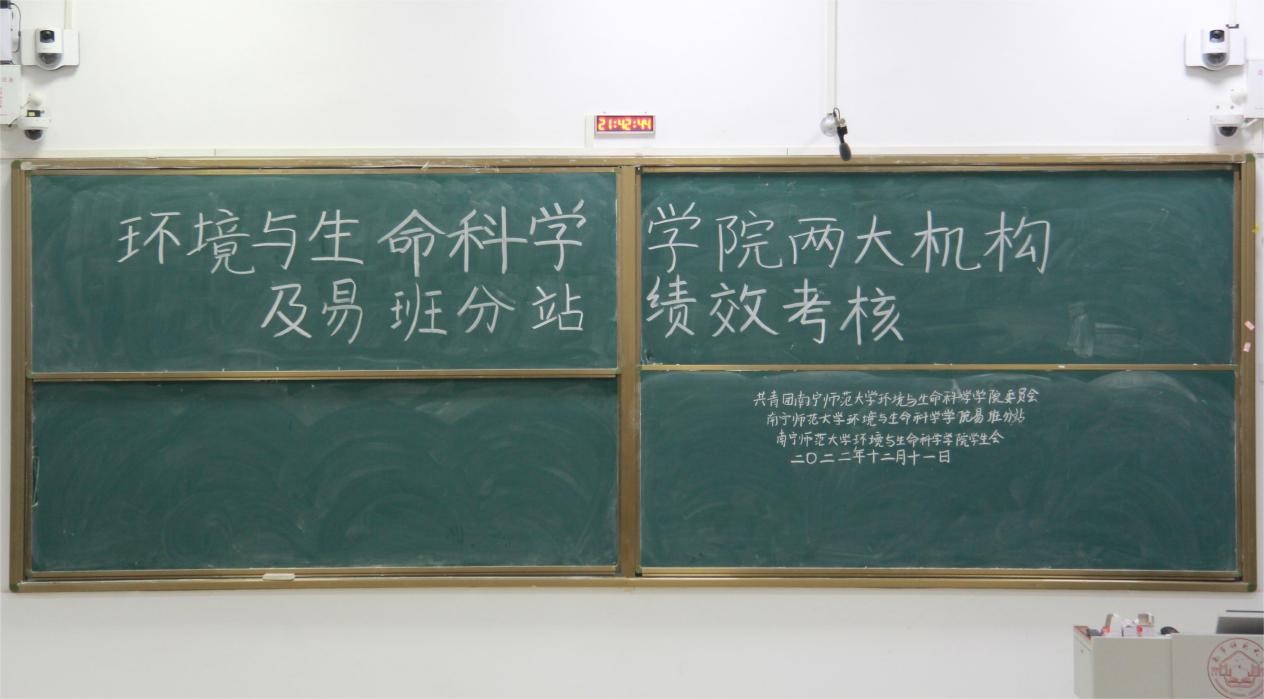 21:42:44
环境与生命科学学院两大机构
及易班分站绩效考核
共青团南宁师范大学环境与生命科学学院委员会
南宁师范大学环境与生命科学学院易班分站
南宁师范大学环境与生命科学学院学生会
二〇二二年十二月十一日